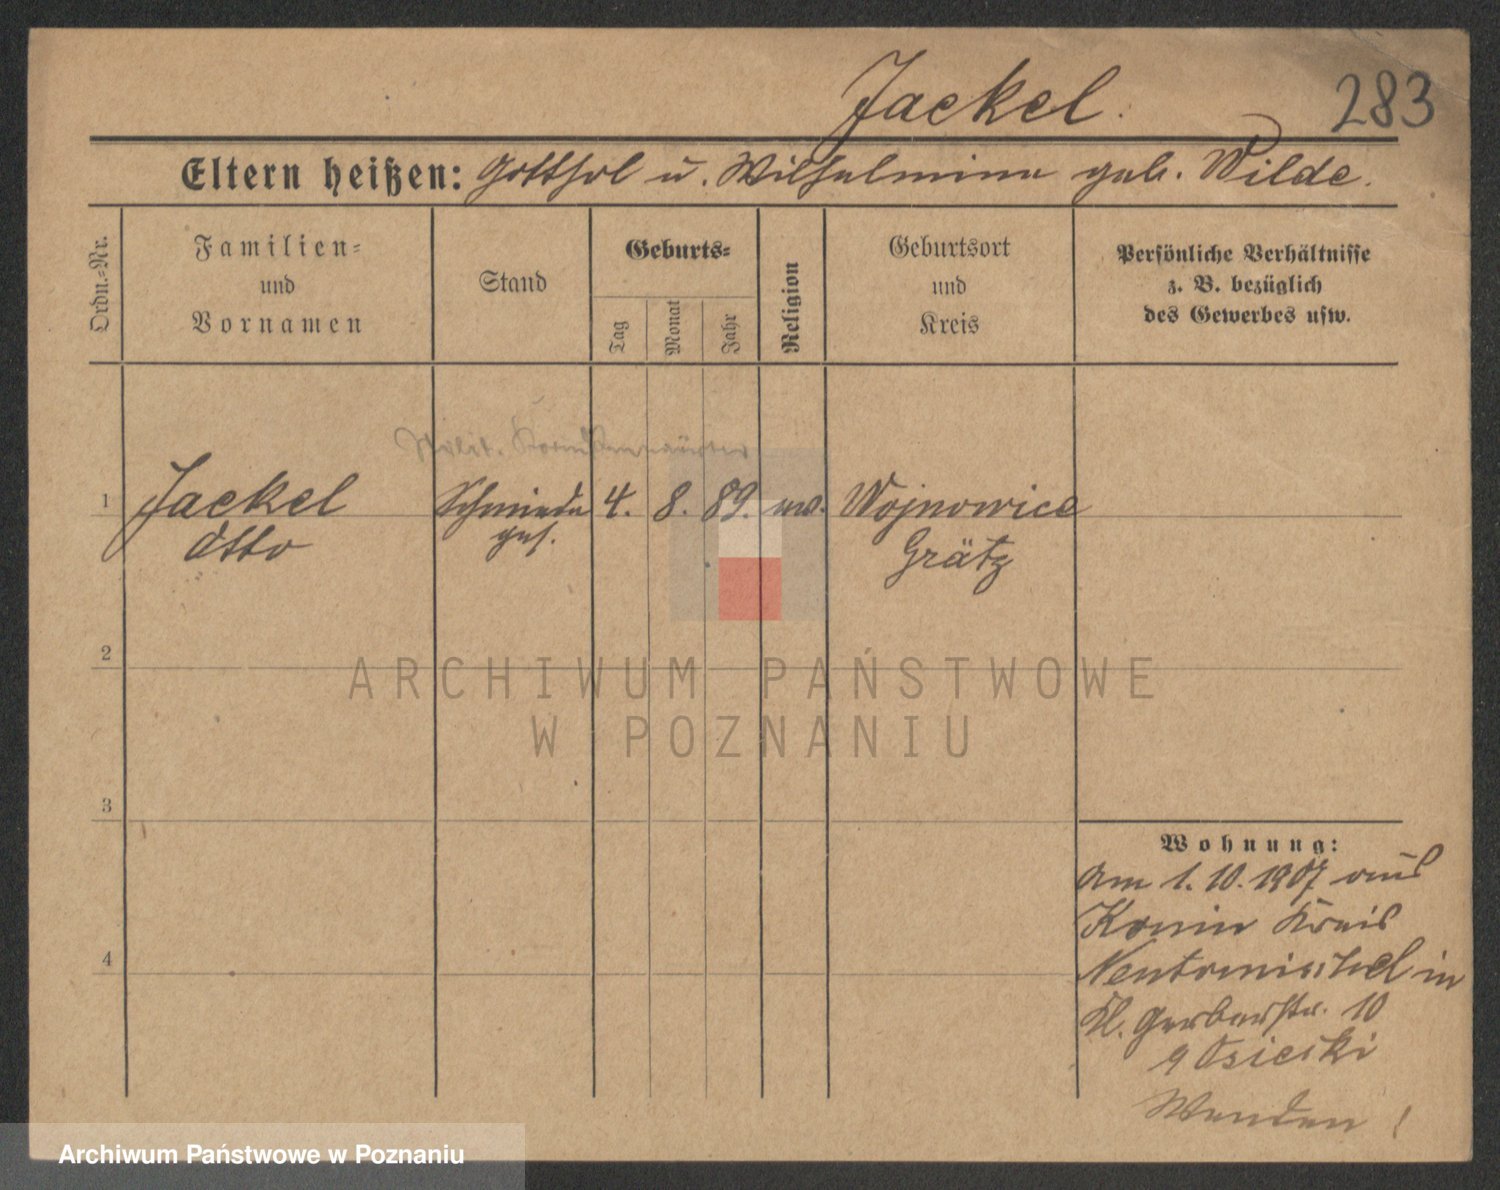 Jackel.
283
Eltern heißen: Gotthol u. Wilhelmine geb. Wilde.
Ordn.-Nr.
Familien-
und
Vornamen
Stand
Geburts-
Tag
Monat
Jahr
Religion
Geburtsort
und
Kreis
Persönliche Verhältnisse
z. B. bezüglich
des Gewerbes usw.
Milit.
1 Jackel Schmiede 4. 8. 89. ev. Wojnowice
Otto ges. Grätz
2
ARCHIWUM PAŃSTWOWE
W POZNANIU
3
Wohnung:
Am 1. 10. 1907 aus
Konin Kreis
4
Neutomischel in
Kl. Gerberstr. 10
Osiecki
Wenden!
Archiwum Państwowe w Poznaniu